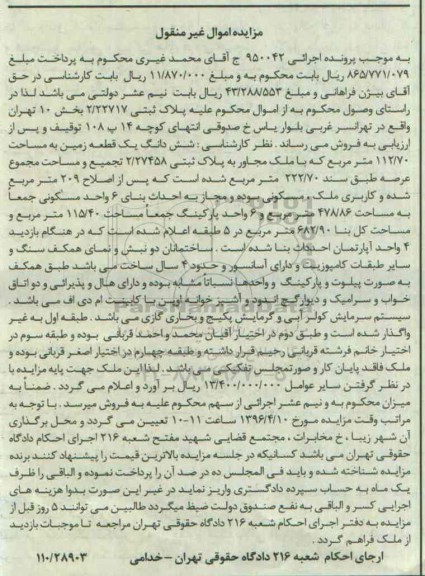 مزایده اموال غیر منقول
به موجب پرونده اجرائی ۹۵۰۰۴۲ ج آقای محمد غیری محکوم به پرداخت مبلغ
۸۶۵/۷۷۱/۰۷۹ ریال بابت محکوم به و مبلغ ۱۱/۸۷۰/۰۰۰ ریال بابت کارشناسی در حق
آقای بیژن فراهانی و مبلغ ۴۳/۲۸۸/۵۵۳ ریال بابت نیم عشر دولتی می باشد لذا در
راستای وصول محکوم به از اموال محکوم علیه پلاک ثبتی ۲/۲۲۷۱۷ بخش ۱۰ تهران
واقع در تهرانسر غربی بلوار یاس خ صدوقی انتهای کوچه ۱۴ پ ۱۰۸ توقیف و پس از
ارزیابی به فروش می رساند . نظر کارشناسی : شش دانگ یک قطعه زمین به مساحت
۱۱۲/۷۰ متر مربع که با ملک مجاور به پلاک ثبتی ۲/۲۷۴۵۸ تجمیع و مساحت مجموع
عرصه طبق سند ۲۲۲/۷۰ متر مربع شده است که پس از اصلاح ۲۰۹ متر مربع
شده و کاربری ملک مسکونی بوده و مجاز به احداث بنای ۶ واحد مسکونی جمعاً
به مساحت ۴۷۸/۸۶ متر مربع و ۶ واحد پارکینگ جمعاً مساحت ۱۱۵/۴۰ متر مربع و
مساحت کل بنا ۶۸۲/۹۰ متر مربع در ۵ طبقه اعلام شده است که در هنگام بازدید
۴ واحد آپارتمان احداث بنا شده است . ساختمان دو نبش و نمای همکف سنگ و
سایر طبقات کامپوزیت و دارای آسانسور و حدود ۴ سال ساخت می باشد طبق همکف
به صورت پیلوت و پارکینگ و واحدها نسباتاً مشابه بوده و دارای هال و پذیرائی و دو اتاق
خواب و سرامیک و دیوار گچ اندود و آشپز خوانه اوپن با کابینت ام دی اف می باشد .
سیستم سرمایش کولر آبی و گرمایش پکیج و بخاری گازی می باشد . طبقه اول به غیر
واگذار شده است و طبق دوم در اختیار آقایان محمد و احمد قربانی بوده و طبقه سوم در
اختیار خانم فرشته قربانی رجینم قرار داشته و طبقه چهارم در اختیار اصغر قربانی بوده و
ملک فاقد پایان کار و صورتمجلس تفکیکی می باشد . لذا این ملک جهت پایه مزایده با
در نظر گرفتن سایر عوامل ۱۳/۴۰۰/۰۰۰/۰۰۰ ریال بر آورد و اعلام می گردد . ضمناً به
میزان محکوم به و نیم عشر اجرائی از سهم محکوم علیه به فروش میرسد . با توجه به
مراتب وقت مزایده مورخ ۱۳۹۶/۴/۱۰ ساعت ۱۱-۱۰ تعیین می گردد و محل برگذاری
آن شهر زیبا ، خ مخابرات ، مجتمع قضایی شهید مفتح شعبه ۲۱۶ اجرای احکام دادگاه
حقوقی تهران می باشد کسانیکه در جلسه مزایده بالاترین قیمت را پیشنهاد کنند برنده
مزایده شناخته شده و باید فی المجلس ده در صد آن را پرداخت نموده و الباقی را ظرف
یک ماه به حساب سپرده دادگستری واریز نماید در غیر این صورت بدوا هزینه های
اجرایی کسر و الباقی به نفع صندوق دولت ضبط میگردد طالبین می توانند ۵ روز قبل از
مزایده به دفتر اجرای احکام شعبه ۲۱۶ دادگاه حقوقی تهران مراجعه تا موجبات بازدید
از ملک فراهم گردد .
ارجای احکام شعبه ۲۱۶ دادگاه حقوقی تهران – خدامی
۱۱۰/۲۸۹۰۳